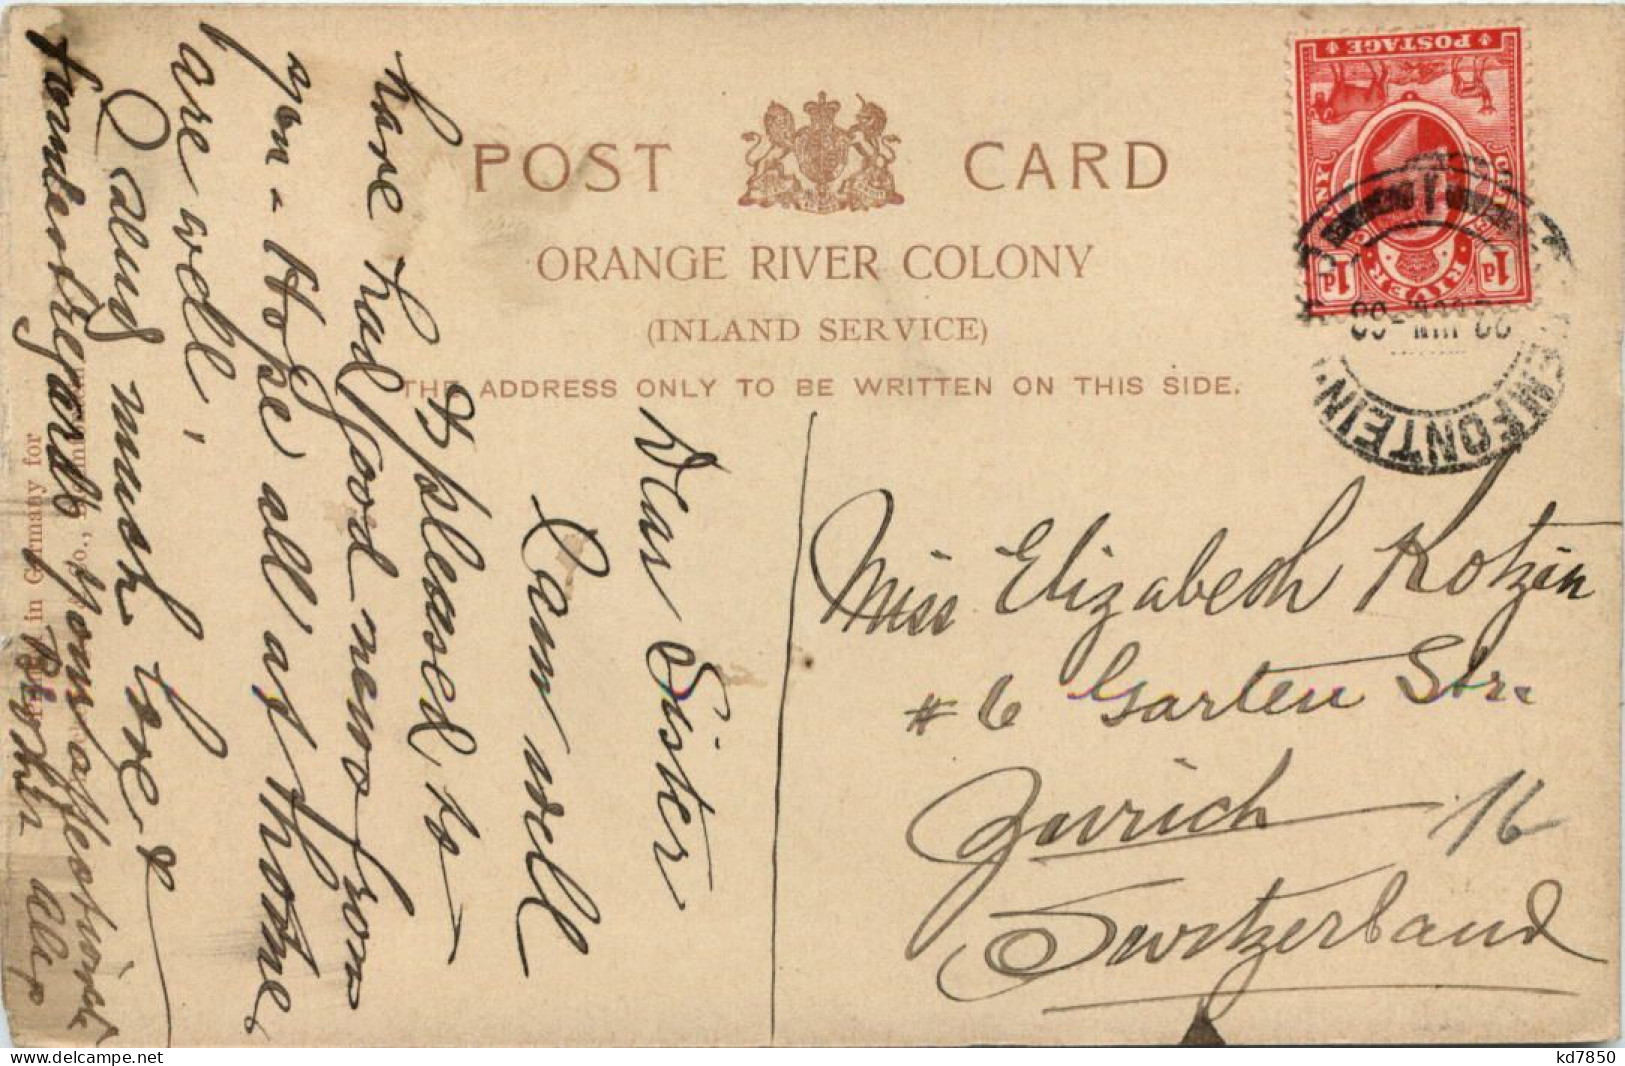 POST CARD
ORANGE RIVER COLONY
(INLAND SERVICE)
THE ADDRESS ONLY TO BE WRITTEN ON THIS SIDE.
POSTAGE
1d 1d
RIVER
FONTEIN
Miss Elizabeth Kotzin
# 6 Garten Str.
Zurich 16
Switzerland
Dear Sister
I am well
& pleased to
have had good news from
you - Hope all at home
are well,
& much love &
regards Your
in Germany for
o.,
kd7850